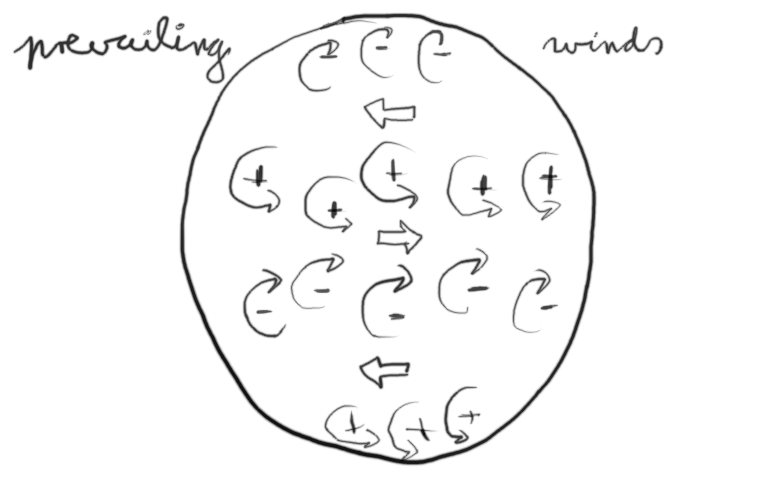 prevailing winds
- - -
+ + + + +
- - - - -
+ + +